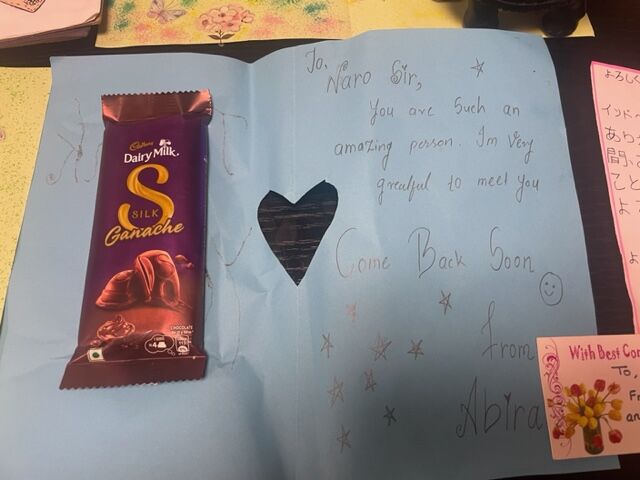 Cadbury
Dairy Milk
S
SILK
Ganache
CHOCOLATE
To,
Naro Sir,
You are Such an
amazing person. Im Very
greatful to meet you
Come Back Soon
From
Abira
よろしく
インド
あり
間
こと
よ
With Best Com
To,
Fr
an